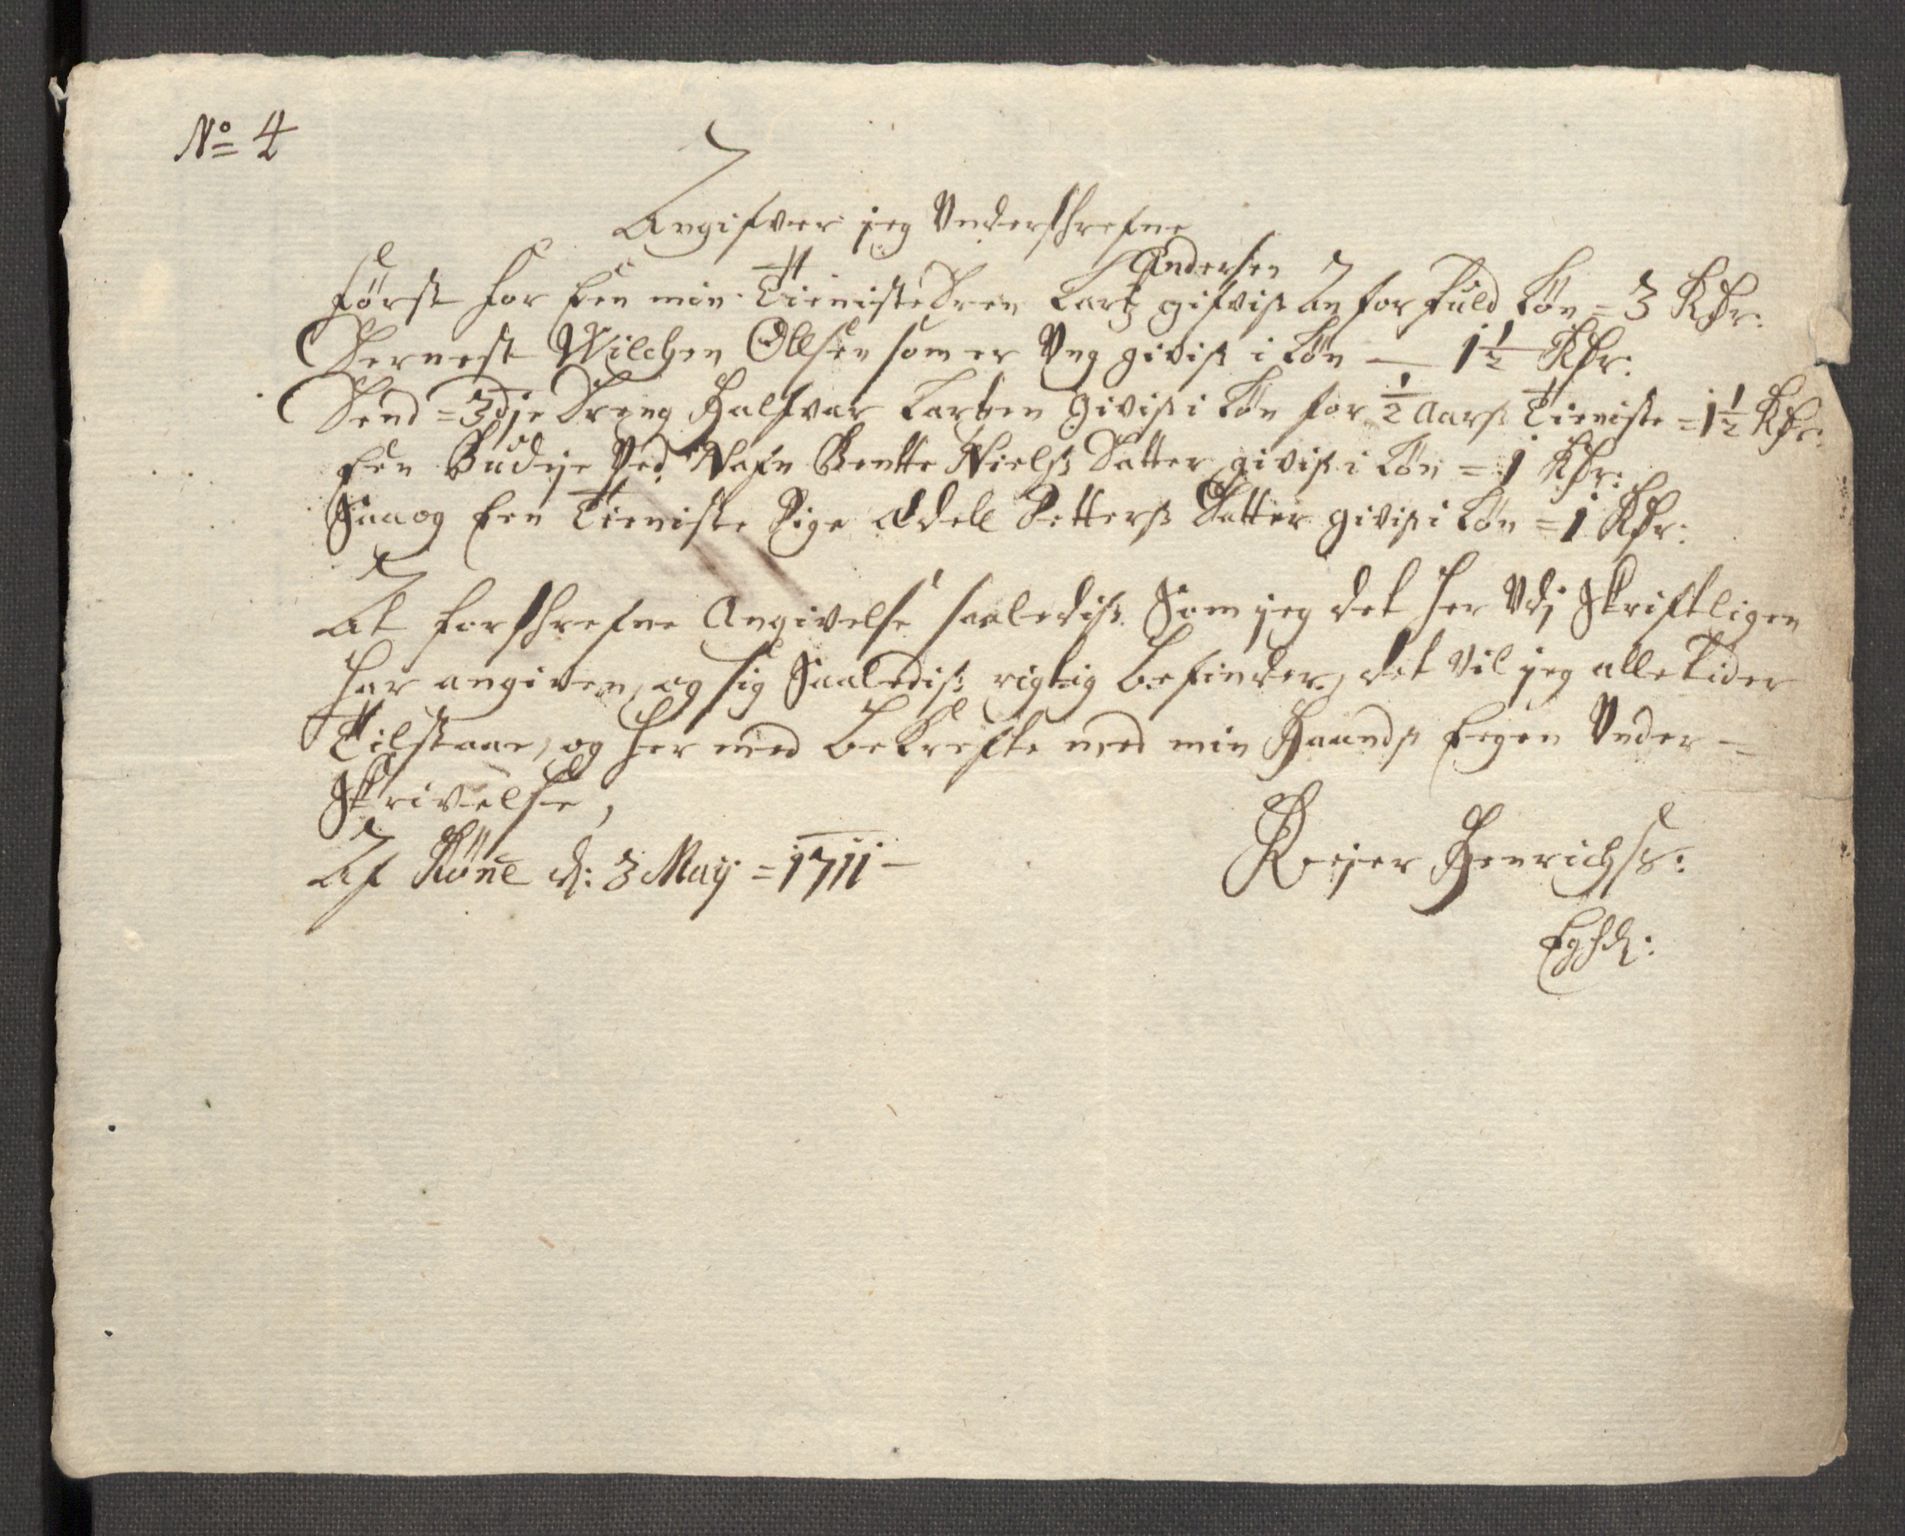 No 4
Angifver jeg Underskrefne
Andersen
først for Een min Tieniste Dren Lartz gifvis An for fuld Løn = 3 Rdr:
Dernest Wilchen Ollsen som er Ung givis i Løn — 1½ Rdr:
Dend = 3dje Dreng Halfvar Larsen Givis i Løn for ½ Aars Tieniste = 1½ Rdr:
Een Budeje Ved Nafn Bentte Niels Datter givis i Løn = 1 Rdr:
Saa og Een Tieniste Pige Ædell Petters Datter givis i Løn = 1 Rdr:
At forskrefne Angivelse saaledis Som jeg det her Udj Skriftligen
har angiven, og sig Saaledis rigtig befinder, det vil jeg alle Tider
Tilstaae, og her med bekrefte med min Haands Eegen Under=
Skrivelse,
Af d: 3 Maij = 1711 —
Reier Henrichs: